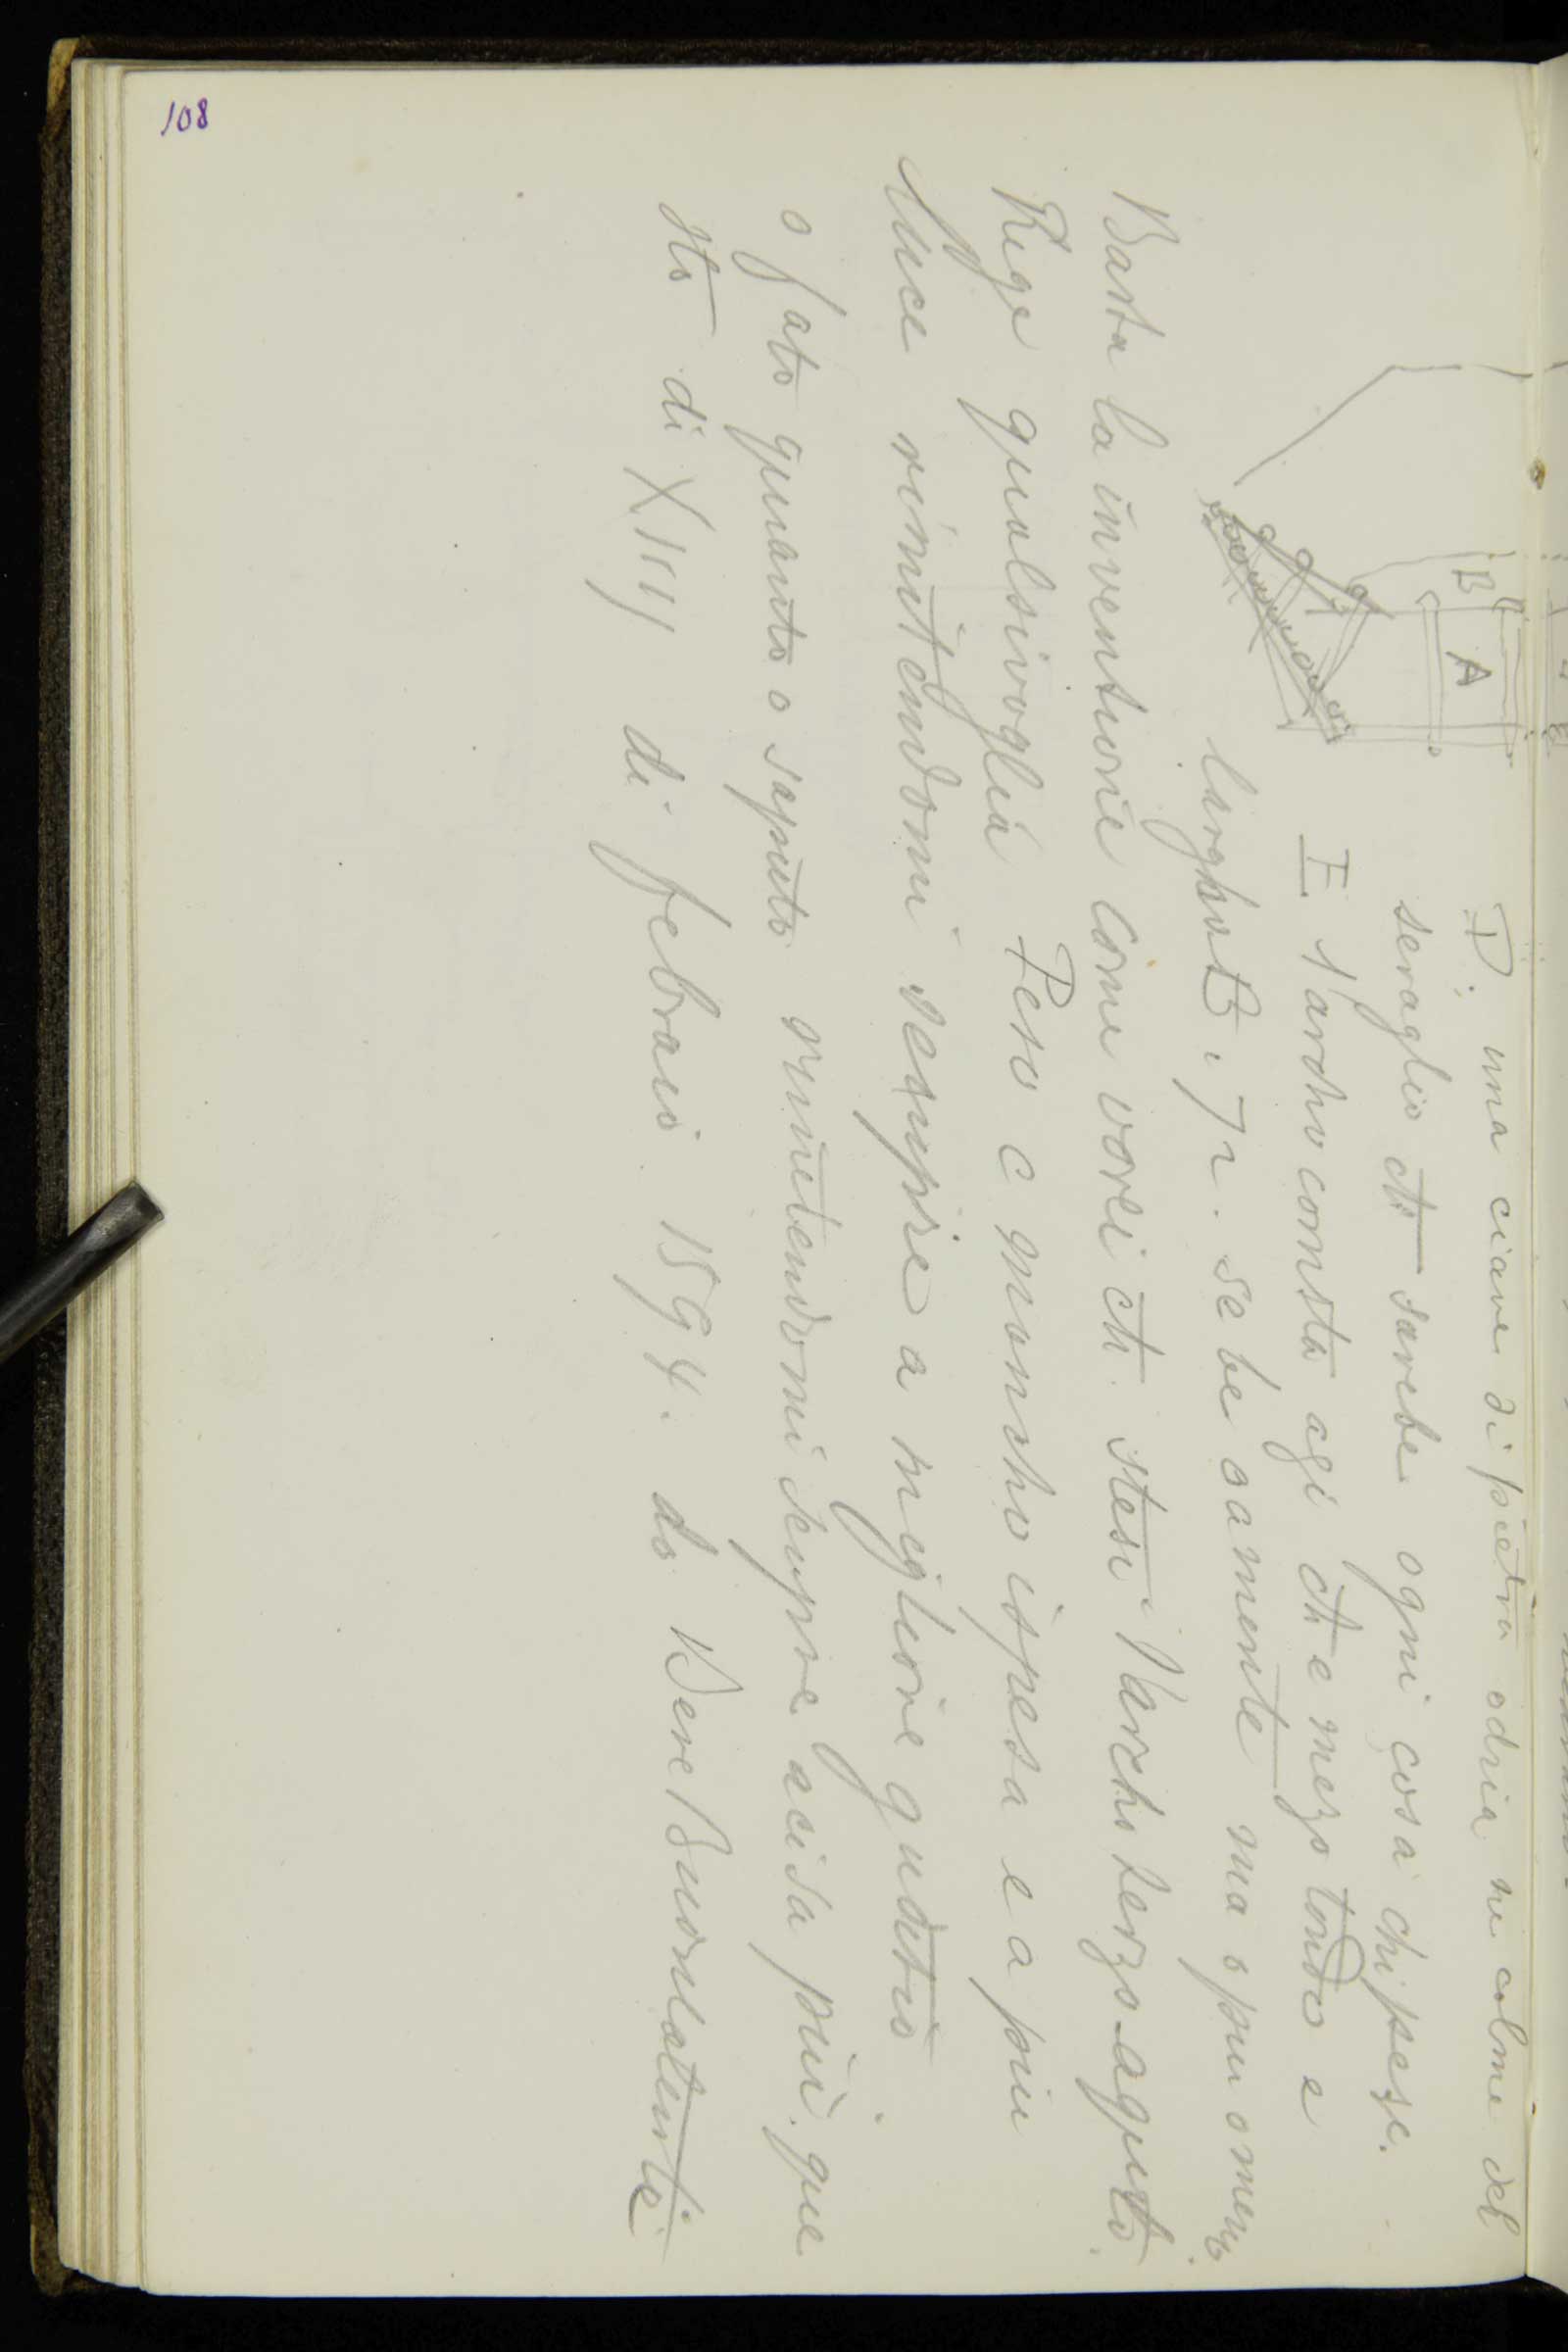 108
B A
D. una ciave di pietra odria ne colme del
seraglio ch sarebe ogni cosa chi pese.
E l'archo consta agi ch e mezo tondo e
largho b. 72. se be o a mente ma o piu o meno.
Basta la inventione come vorei ch. stesi l'archo terzo-aguto.
Rege qualsivoglia Peso c mancho ispesa e a piu
luce rimitendomi sempre a migliore guditio
o fato quanto o saputo rimetendomi sempre acisa piu. que
sto di XIIII di febraio 1594. do Bere Buonlatenti